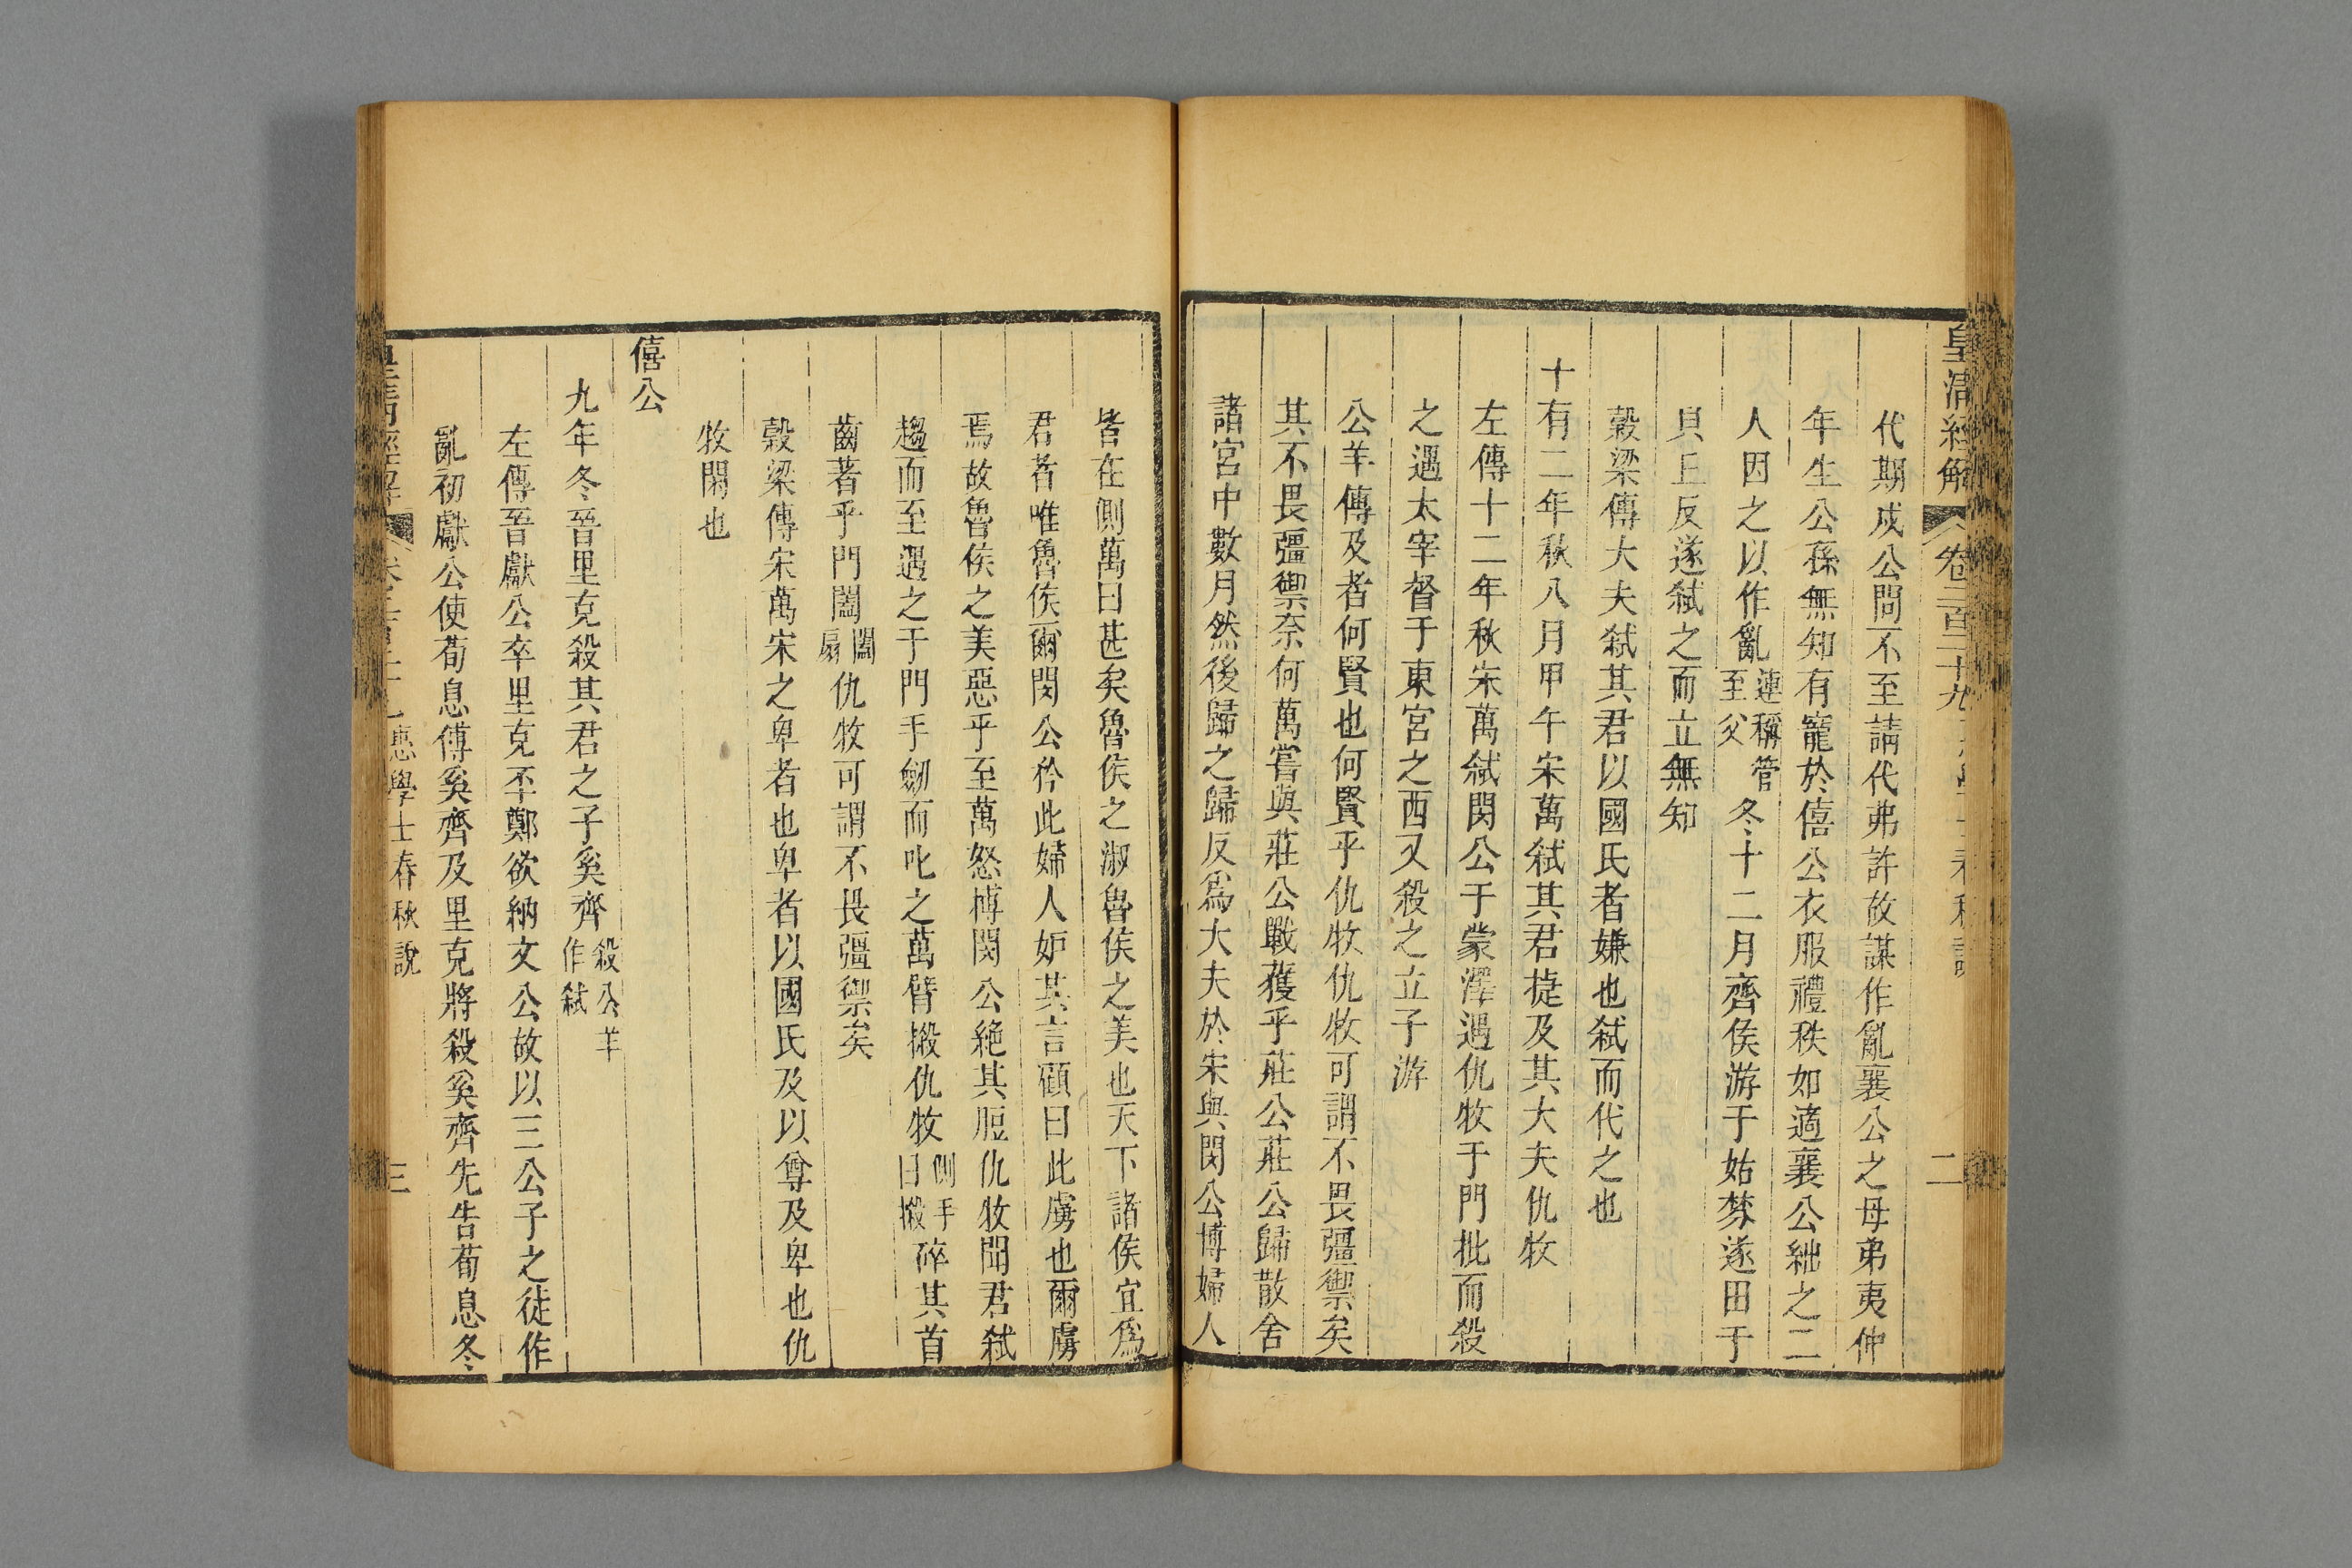 皇清經解 卷二百三十九 二
代期戍公問不至請代弗許故謀作亂襄公之母弟夷仲
年生公孫無知有寵於僖公衣服禮秩如適襄公絀之二
人因之以作亂連稱管至父冬十二月齊侯游于姑棼遂田于
貝丘反遂弒之而立無知
穀梁傳大夫弒其君以國氏者嫌也弒而代之也
十有二年秋八月甲午宋萬弒其君捷及其大夫仇牧
左傳十二年秋宋萬弒閔公于蒙澤遇仇牧于門批而殺
之遇太宰督于東宮之西又殺之立子游
公羊傳及者何賢也何賢乎仇牧仇牧可謂不畏彊禦矣
其不畏彊禦奈何萬嘗與莊公戰獲乎莊公莊公歸散舍
諸宮中數月然後歸之歸反爲大夫於宋與閔公博婦人
皆在側萬曰甚矣魯侯之淑魯侯之美也天下諸侯宜爲
君者唯魯侯爾閔公矜此婦人妒其言顧曰此虜也爾虜
焉故魯侯之美惡乎至萬怒博閔公絶其脰仇牧聞君弒
趨而至遇之于門手劒而叱之萬臂摋仇牧側手曰摋碎其首
齒著乎門闔闔扇仇牧可謂不畏彊禦矣
穀梁傳宋萬宋之卑者也卑者以國氏及以尊及卑也仇
牧閑也
僖公
九年冬晉里克殺其君之子奚齊殺公羊作弒
左傳晉獻公卒里克丕鄭欲納文公故以三公子之徒作
亂初獻公使荀息傅奚齊及里克將殺奚齊先告荀息冬
惠學士春秋說 三